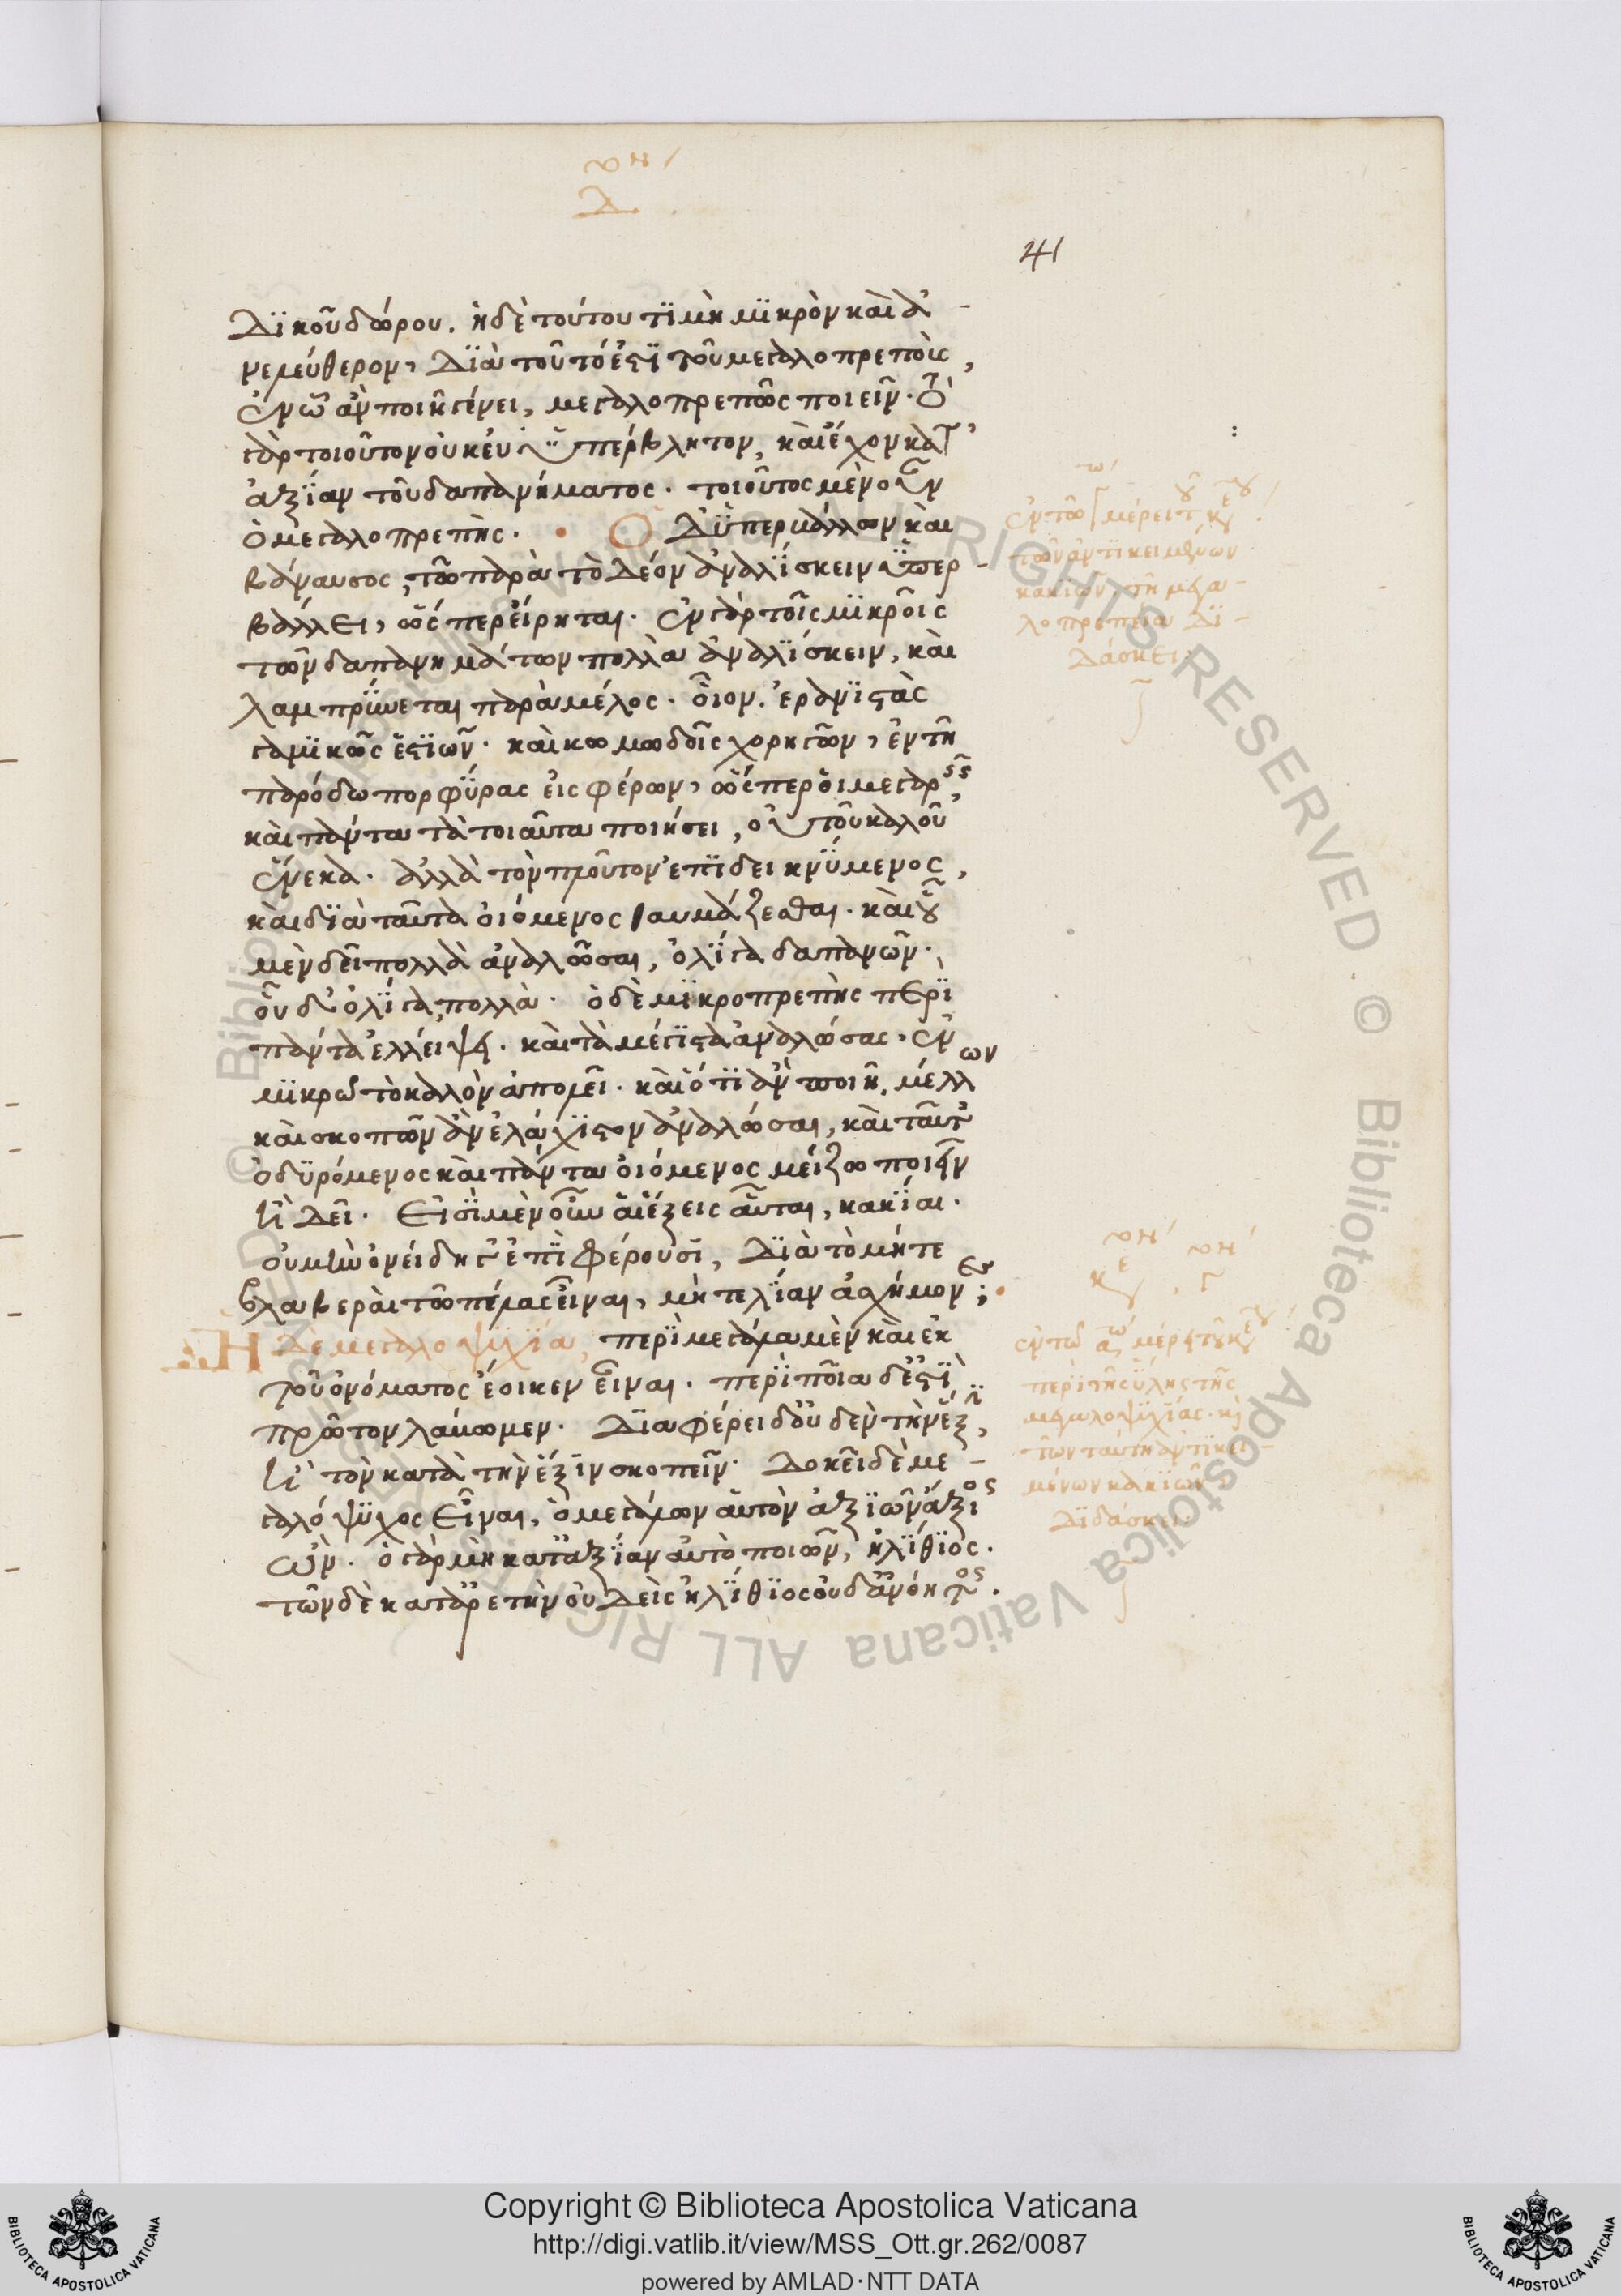 βιβ
Δ
41
δικοῦ δώρου. ἡ δὲ τούτου τιμὴ μικρὸν καὶ ἀ-
νελεύθερον, διὰ τοῦτό ἐστι τοῦ μεγαλοπρεποῦς,
ἐν ᾧ ἂν ποιῇ γένει, μεγαλοπρεπῶς ποιεῖν. τὸ
γὰρ τοιοῦτον οὐκ εὐυπέρβλητον, καὶ ἔχον κατ'
ἀξίαν τοῦ δαπανήματος. τοιοῦτος μὲν οὖν
ὁ μεγαλοπρεπής. Ὁ δ' ὑπερβάλλων καὶ
βάναυσος, τῷ παρὰ τὸ δέον ἀναλίσκειν ὑπερ-
βάλλει, ὥσπερ εἴρηται. ἐν γὰρ τοῖς μικροῖς
τῶν δαπανημάτων πολλὰ ἀναλίσκειν, καὶ
λαμπρύνεται παρὰ μέλος. οἷον. ἐρανιστὰς
γαμικῶς ἑστιῶν. καὶ κωμῳδοῖς χορηγῶν, ἐν τῇ
παρόδῳ πορφύρας εἰσφέρων, ὥσπερ οἱ μεγαρεῖς
καὶ πάντα τὰ τοιαῦτα ποιήσει, οὐ τοῦ καλοῦ
ἕνεκα. ἀλλὰ τὸν πλοῦτον ἐπιδεικνύμενος,
καὶ διὰ ταῦτα οἰόμενος θαυμάζεσθαι. καὶ οὗ
μὲν δεῖ πολλὰ ἀναλῶσαι, ὀλίγα δαπανῶν.
οὗ δ' ὀλίγα, πολλὰ. ὁ δὲ μικροπρεπὴς περὶ
πάντα ἐλλείψει. καὶ τὰ μέγιστα ἀναλώσας, ἐν
μικρῷ τὸ καλὸν ἀπολεῖ. καὶ ὅτι ἂν ποιῇ, μέλλων
καὶ σκοπῶν ἂν ἐλάχιστον ἀναλώσαι, καὶ ταῦτ'
ὀδυρόμενος καὶ πάντα οἰόμενος μείζω ποιεῖν
ἢ δεῖ. Εἰσὶ μὲν οὖν αἱ ἕξεις αὗται, κακίαι.
οὐ μὴν ὀνείδη γ' ἐπιφέρουσι, διὰ τὸ μήτε
βλαβεραὶ τῷ πέλας εἶναι, μήτε λίαν ἀσχήμονες;
Ἡ δὲ μεγαλοψυχία, περὶ μεγάλα μὲν καὶ ἐκ
τοῦ ὀνόματος ἔοικεν εἶναι. περὶ ποῖα δ' ἐστὶ
πρῶτον λάβωμεν. διαφέρει δ' οὐδὲν τὴν ἕξιν,
ἢ τὸν κατὰ τὴν ἕξιν σκοπεῖν. Δοκεῖ δὲ με-
γαλόψυχος εἶναι, ὁ μεγάλων αὑτὸν ἀξιῶν ἄξιος
ὤν. ὁ γὰρ μὴ κατ' ἀξίαν αὐτὸ ποιῶν, ἠλίθιος.
τῶν δὲ κατ' ἀρετὴν οὐδεὶς ἠλίθιος οὐδ' ἀνόητος.
τῶν ἀντικειμένων
κακιῶν τῇ μεγα-
λοπρεπείᾳ δι-
δάσκει
περὶ τῆς ὕλης τῆς
μεγαλοψυχίας. καὶ
τῶν ταύτῃ ἀντικει-
μένων κακιῶν
διδάσκει
Copyright © Biblioteca Apostolica Vaticana
http://digi.vatlib.it/view/MSS_Ott.gr.262/0087
powered by AMLAD·NTT DATA